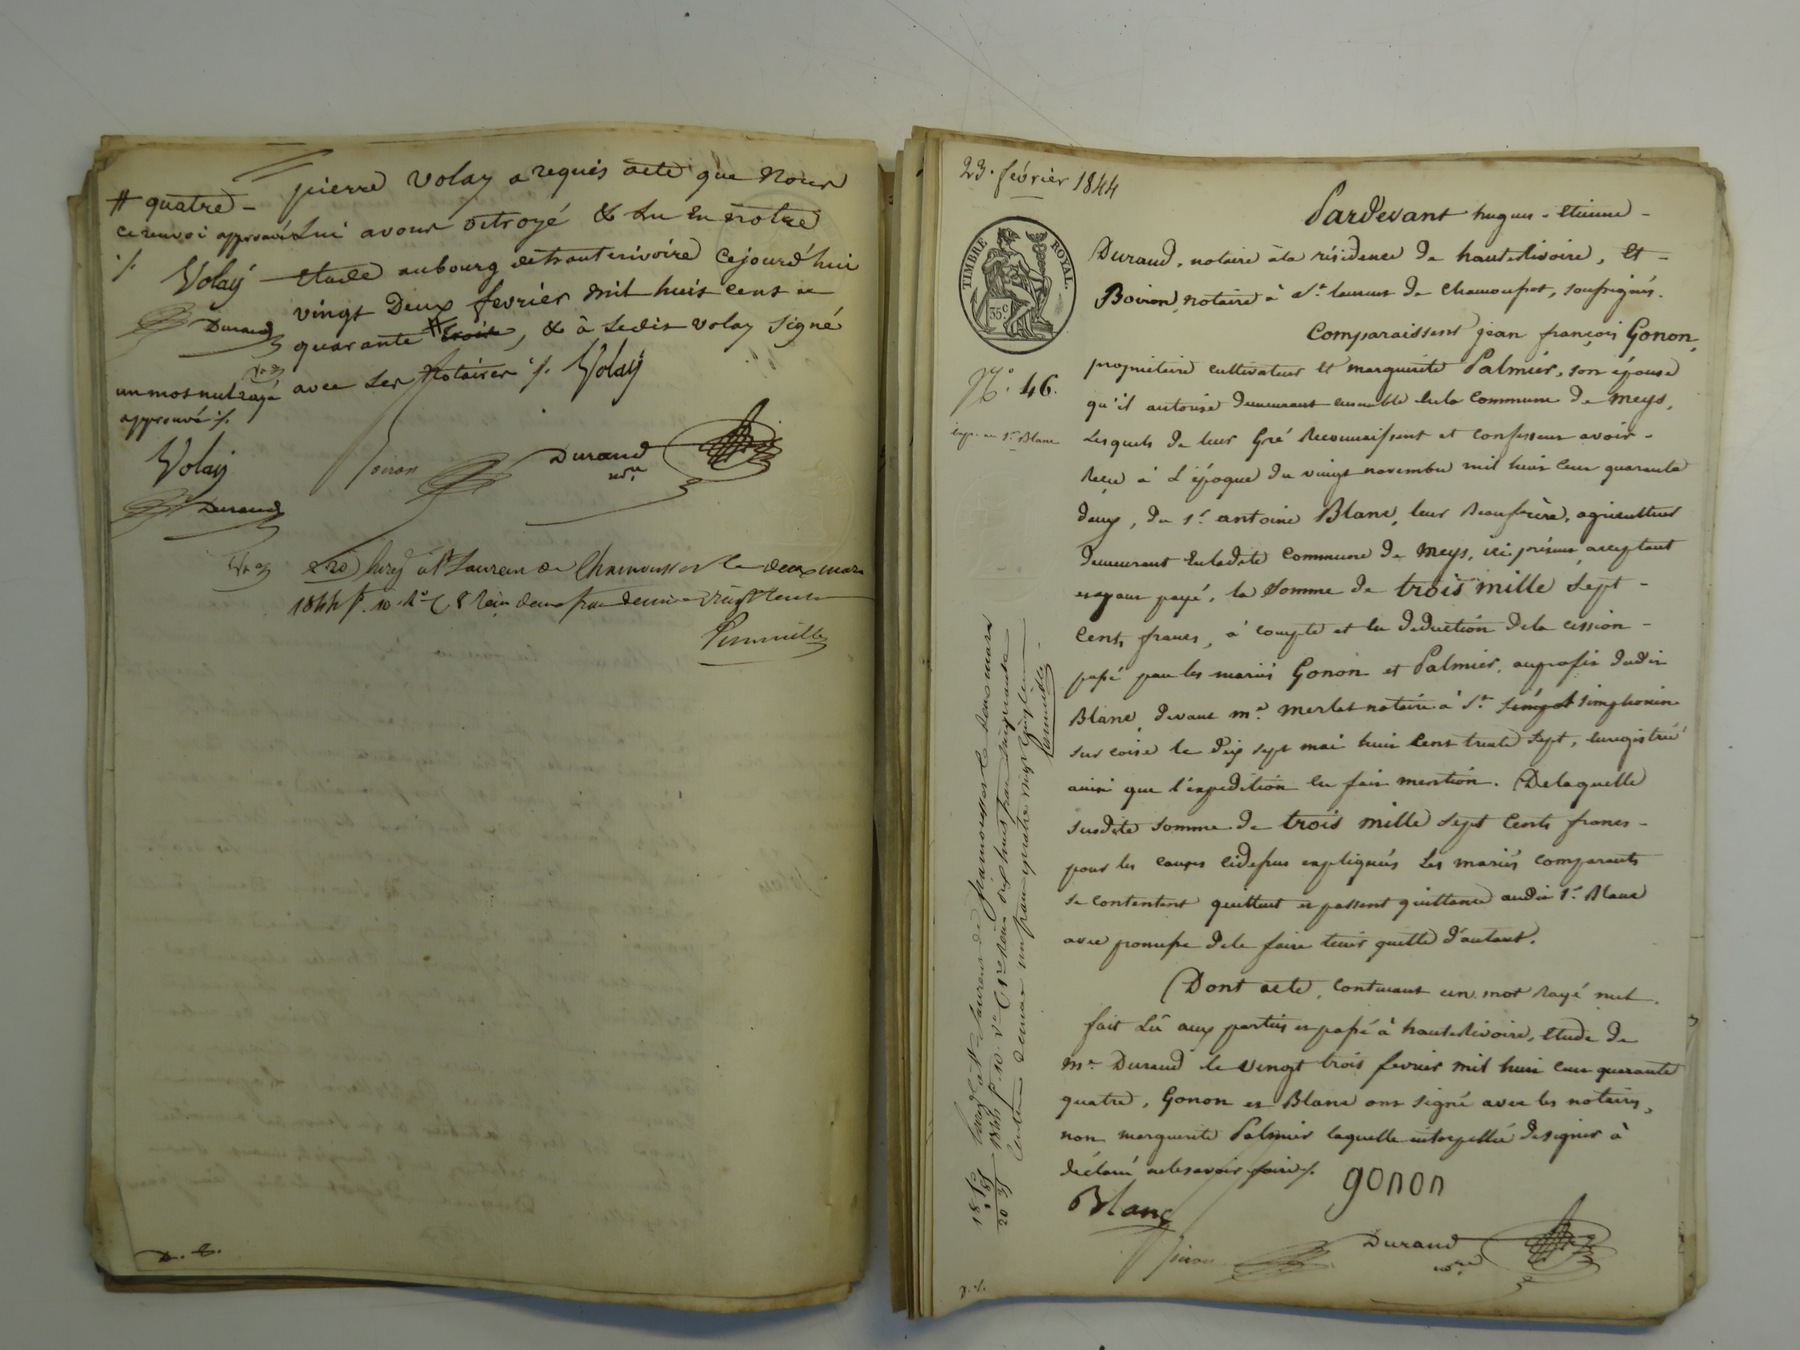 pierre Volay a requis acte que Nous
# quatre -
ce renvoi approuvé
Lui avons octroyé & Lu En notre
·/. Volaÿ
Etude au bourg de hauterivoire Cejourd'hui
Durand
vingt Deux fevrier mil huit Cent
quarante # trois, & à Ledit Volay Signé
un mot nul rayé
avec Les Notaires ·/. Volaÿ
approuvé ·/.
Volaÿ
Boiron Durand
nore
Durand
Enregé à St Laurent de Chamousset le deux mars
1844 fo. 10 Ro C 8 Reçu deux francs
D. B.
23. février 1844
TIMBRE ROYAL.
35c
No. 46.
Exp. au Sr. Blanc
Pardevant hugues - Etienne -
Durand, notaire à la résidence de hauterivoire, Et -
Boiron, notaire à St. laurent de Chamousset, soussignés.
Comparaissent jean françois Gonon,
propriétaire cultivateur et marguerite Palmier, son épouse
qu'il autorise demeurant ensemble en la Commune de Meys,
Lesquels de leur Gré Reconnaissent et confessent avoir -
Reçu à L'époque du vingt novembre mil huit cent quarante
deux, du Sr. antoine Blanc, leur Beaufrère, agriculteur
demeurant En ladite Commune de Meys, ici présent acceptant
et ayant payé, la Somme de trois mille Sept -
Cents francs, à compte et en déduction de la cession -
passé par les mariés Gonon et Palmier, au profit dudit
Blanc, devant me. Merlat notaire à St. simphorien
sur coise le Dix sept mai huit Cent trente Sept, Enregistrée
ainsi que l'expédition en fait mention. De laquelle
susdite somme de trois mille Sept Cents francs -
pour les causes cidessus expliquées Les mariés comparants
se contentent quittent et passent quittance audit Sr. Blanc
avec promesse de le faire tenir quitte d'autant.
Dont acte, contenant un mot Rayé nul.
fait Lû aux parties et passé à hauterivoire, Etude de
Me. Durand le vingt trois fevrier mil huit cent quarante
quatre, Gonon et Blanc ont signé avec les notaires,
non marguerite Palmier laquelle interpellée de signer à
déclaré ne le savoir faire ·/.
gonon
Blanc
Boiron Durand
nore